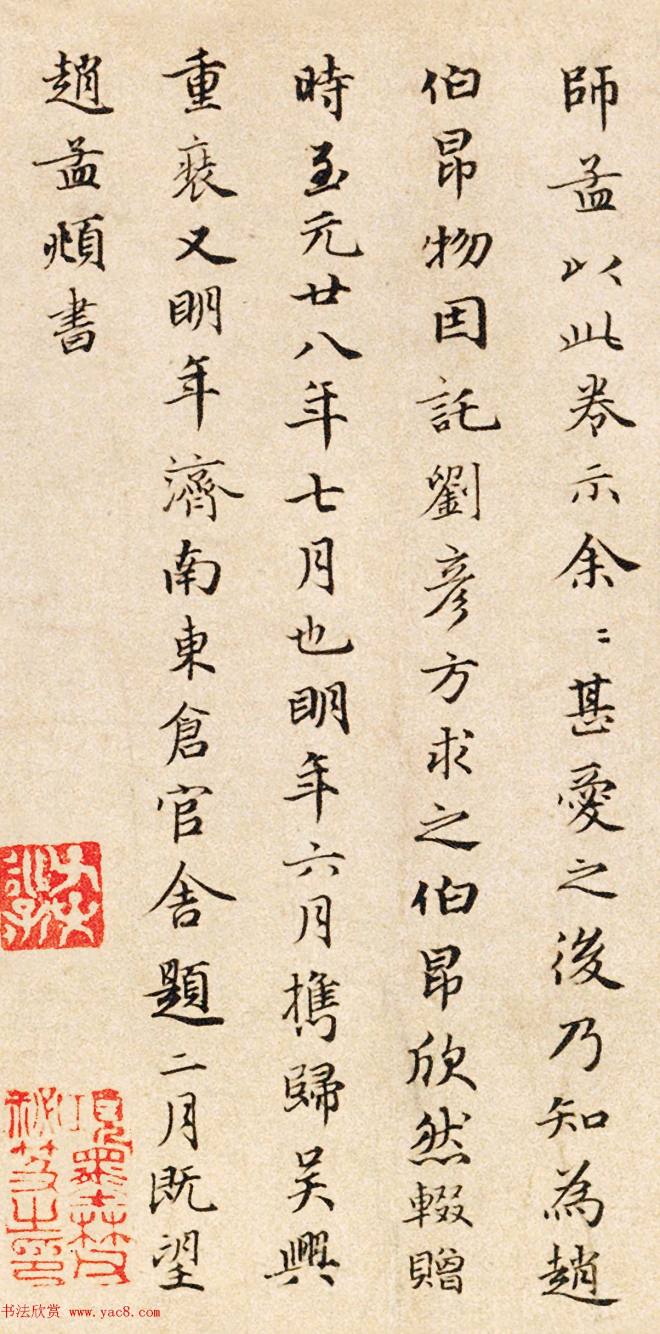 師孟以此卷示余〻甚愛之後乃知為趙
伯昂物因託劉彥方求之伯昂欣然輟贈
時至元廿八年七月也明年六月攜歸吳興
重裝又明年濟南東倉官舍題二月既望
趙孟頫書
項墨林父
秘笈之印
书法欣赏 www.yac8.com